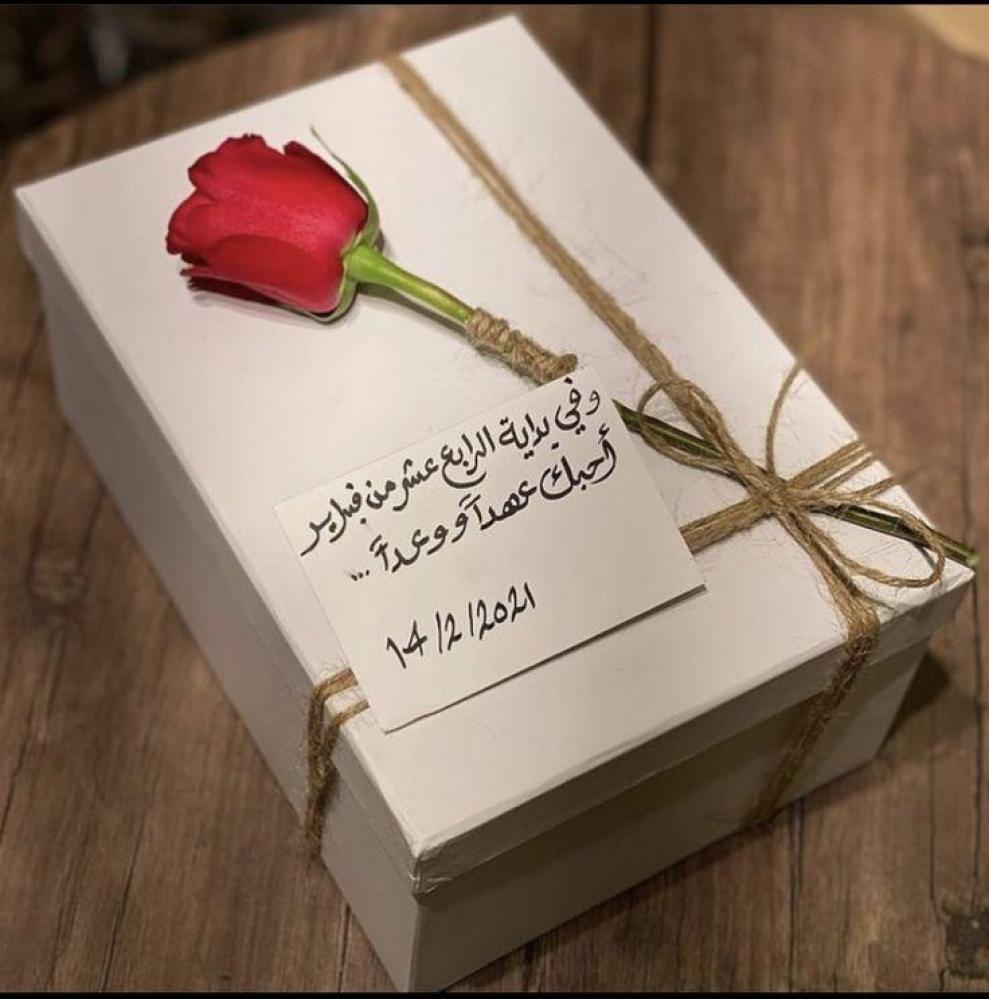 وفي بداية الرابع عشر من فبراير
أحبك عهداً و وعداً ...
14/2/2021